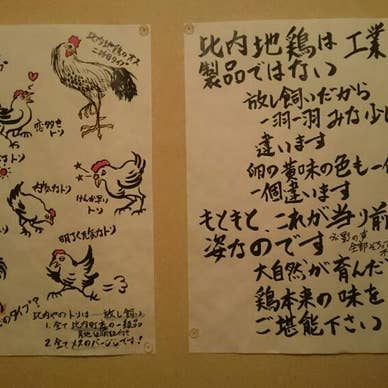 比内地鶏のオス
恋多き
トリ
内気なトリ
けんか早い
トリ
明るく元気なトリ
比内やのトリは…放し飼い
2.全てメスのバージンです!
比内地鶏は 工業
製品ではない
放し飼いだから
一羽一羽 みな少し
違います
卵の黄味の色も一個
一個違います
もともと、これが当り前
姿なのです
大自然が育んだ
鶏本来の味を
ご堪能下さい